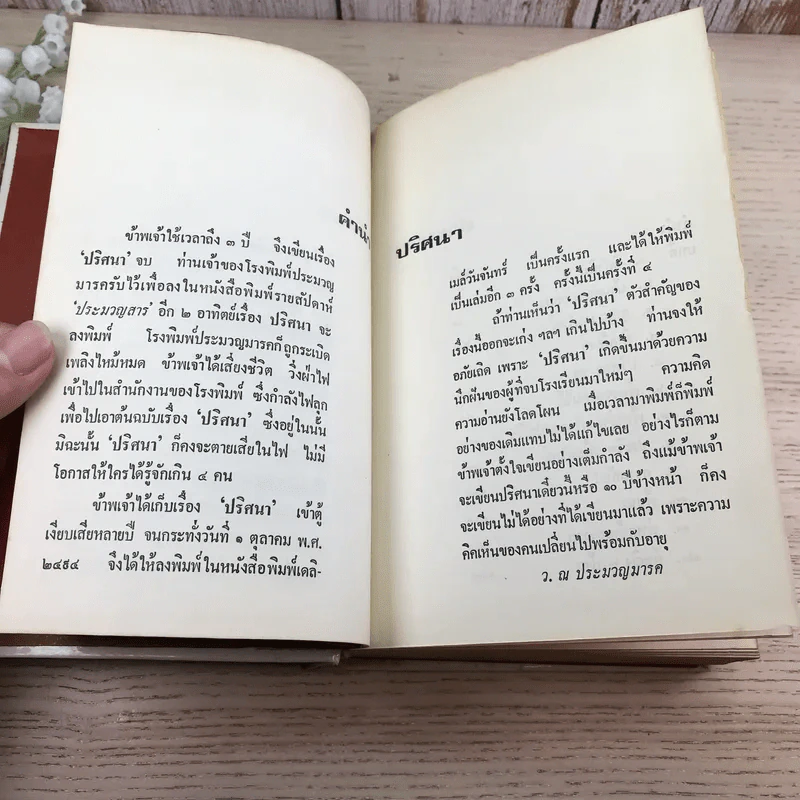 คำนำ
ข้าพเจ้าใช้เวลาถึง ๓ ปี จึงเขียนเรื่อง
'ปริศนา' จบ ท่านเจ้าของโรงพิมพ์ประมวญ
มารครับไว้เพื่อลงในหนังสือพิมพ์รายสัปดาห์
'ประมวญสาร' อีก ๒ อาทิตย์เรื่อง ปริศนา จะ
ลงพิมพ์ โรงพิมพ์ประมวญมารคก็ถูกระเบิด
เพลิงไหม้หมด ข้าพเจ้าได้เสี่ยงชีวิต วิ่งฝ่าไฟ
เข้าไปในสำนักงานของโรงพิมพ์ ซึ่งกำลังไฟลุก
เพื่อไปเอาต้นฉบับเรื่อง 'ปริศนา' ซึ่งอยู่ในนั้น
มิฉะนั้น 'ปริศนา' ก็คงจะตายเสียในไฟ ไม่มี
โอกาสให้ใครได้รู้จักเกิน ๔ คน
ข้าพเจ้าได้เก็บเรื่อง 'ปริศนา' เข้าตู้
เงียบเสียหลายปี จนกระทั่งวันที่ ๑ ตุลาคม พ.ศ.
๒๔๙๔ จึงได้ให้ลงพิมพ์ในหนังสือพิมพ์เดลิ-
ปริศนา
เมล์วันจันทร์ เป็นครั้งแรก และได้ให้พิมพ์
เป็นเล่มอีก ๓ ครั้ง ครั้งนี้เป็นครั้งที่ ๔
ถ้าท่านเห็นว่า 'ปริศนา' ตัวสำคัญของ
เรื่องนี้ออกจะเก่ง ฯลฯ เกินไปบ้าง ท่านจงให้
อภัยเถิด เพราะ 'ปริศนา' เกิดขึ้นมาด้วยความ
นึกฝันของผู้ที่จบโรงเรียนมาใหม่ๆ ความคิด
ความอ่านยังโลดโผน เมื่อเวลามาพิมพ์ก็พิมพ์
อย่างของเดิมแทบไม่ได้แก้ไขเลย อย่างไรก็ตาม
ข้าพเจ้าตั้งใจเขียนอย่างเต็มกำลัง ถึงแม้ข้าพเจ้า
จะเขียนปริศนาเดี๋ยวนี้หรือ ๑๐ ปีข้างหน้า ก็คง
จะเขียนไม่ได้อย่างที่ได้เขียนมาแล้ว เพราะความ
คิดเห็นของคนเปลี่ยนไปพร้อมกับอายุ
ว. ณ ประมวญมารค